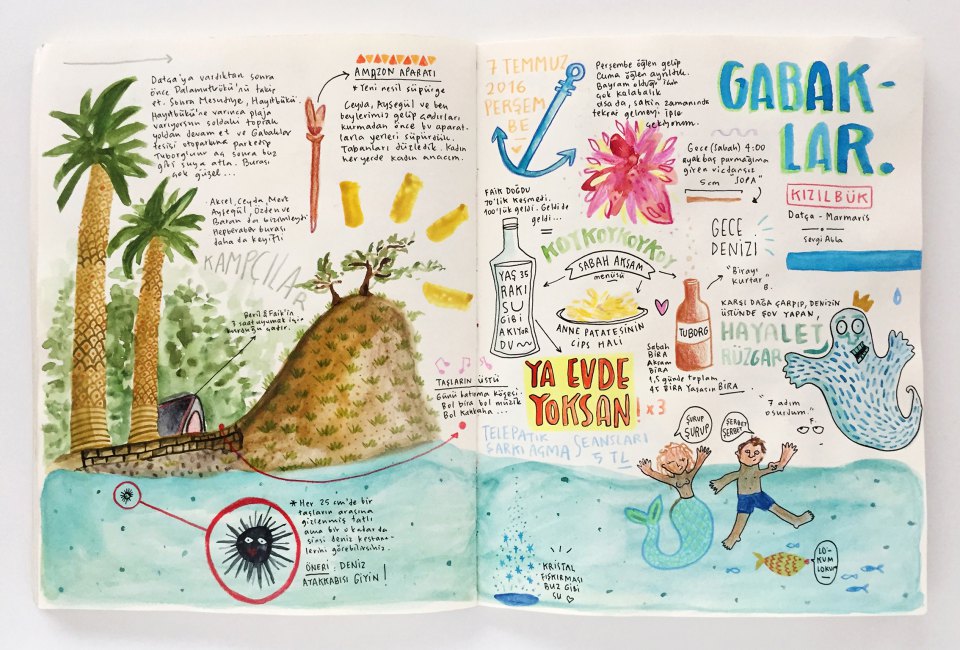 Datça'ya vardıktan sonra
önce Palamutbükü'nü takip
et. Sonra Mesudiye, Hayıtbükü.
Hayıtbükü'ne varınca plaja
varıyorsun soldaki toprak
yoldan devam et ve Gabaklar
tesisi otoparkına parkedip
Tuborg'unu aç sonra buz
gibi suya atla. Burası
çok güzel...
Aksel, Ceyda, Mert
Ayşegül, Özden ve
Baran da bizimleydi
Hepberaber burası
daha da keyifli
KAMPÇILAR
Beril & Faik'in
3 saat uyumak için
kurduğu çadır.
AMAZON APARATI
* Yeni nesil süpürge
Ceyda, Ayşegül ve ben
beylerimiz gelip çadırları
kurmadan önce bu aparat-
larla yerleri süpürdük.
Tabanları düzledik. Kadın
her yerde kadın anacım.
TAŞLARIN ÜSTÜ
Günü batırma köşesi.
Bol bira bol müzik
Bol kahkaha...
* Her 25 cm'de bir
taşların arasına
gizlenmiş tatlı
ama bir o kadar da
sinsi deniz kestane-
lerini görebilirsiniz.
ÖNERİ: DENİZ
AYAKKABISI GİYİN!
7 TEMMUZ
2016
PERŞEM
BE
Perşembe öğlen gelip
Cuma öğlen ayrıldık.
Bayram olduğu için
çok kalabalık
olsa da, sakin zamanında
tekrar gelmeyi iple
çekiyorum.
GABAK-
LAR.
KIZILBÜK
Datça - Marmaris
Sevgi Abla
Gece (Sabah) 4:00
ayakbaş parmağıma
giren vicdansız
5 cm "SOPA"
FAİK DOĞDU
70'lik kesmedi.
100'lük geldi. Geldi de
geldi...
YAŞ 35
RAKI
SU
GİBİ
AKIYOR
DU
KOYKOYKOYKOY
SABAH AKŞAM
menüsü
ANNE PATATESİNİN
CİPS HALİ
GECE
DENİZİ
"Birayı
kurtar"
B.
TUBORG
Sabah
BİRA
Akşam
BİRA
1,5 günde toplam
45 BİRA Yaşasın BİRA
KARŞI DAĞA ÇARPIP, DENİZİN
ÜSTÜNDE ŞOV YAPAN,
HAYALET
RÜZGAR
"7 adım
osurdum."
YA EVDE
YOKSAN! x3
TELEPATİK
ŞARKI AÇMA SEANSLARI
5 TL
ŞURUP
ŞURUP
ŞERBET
ŞERBET
LO-
KUM
LOKUM
KRİSTAL
FIŞKIRMASI
BUZ GİBİ
SU